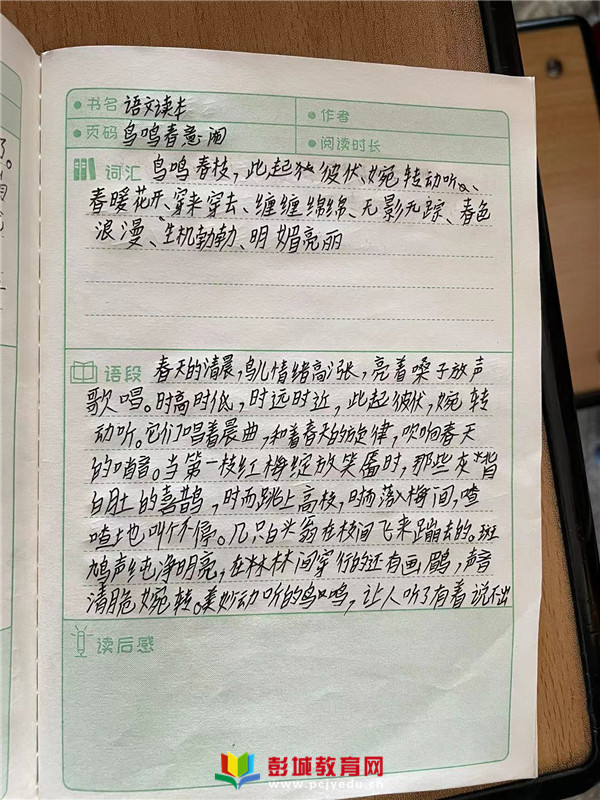 书名 语文读本
作者
页码 鸟鸣春意闹
阅读时长
词汇 鸟鸣春枝,此起彼伏、婉转动听、
春暖花开、穿来穿去、缠缠绵绵、无影无踪、春色
浪漫、生机勃勃、明媚亮丽
语段 春天的清晨,鸟儿情绪高涨,亮着嗓子放声
歌唱。时高时低,时远时近,此起彼伏,婉转
动听。它们唱着晨曲,和着春天的旋律,吹响春天
的哨音。当第一枝红梅绽放笑靥时,那些灰背
白肚的喜鹊,时而跳上高枝,时而落入梅间,喳
喳地叫个不停。几只白头翁在枝间飞来蹦去的。斑
鸠声纯净明亮,在林林间穿行的还有画鹛,声音
清脆婉转。美妙动听的鸟鸣,让人听了有着说不出
读后感
彭城教育网
www.pcjyedu.cn